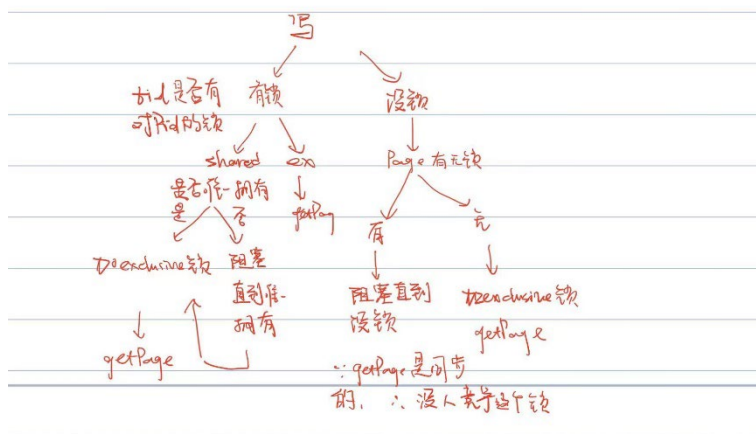 写
tid是否有 有锁 没锁
对Pid的锁
shared ex Page有无锁
是否唯一拥有 getPag
是 否 有 无
加exclusive锁 阻塞
直到唯一 阻塞直到 加exclusive锁
拥有 没锁 getPage
getPage
∵getPage是同步
的, ∴没人竞争这个锁